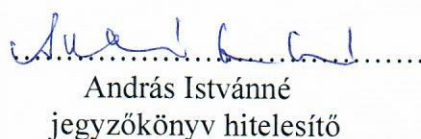 András Istvánné
jegyzőkönyv hitelesítő